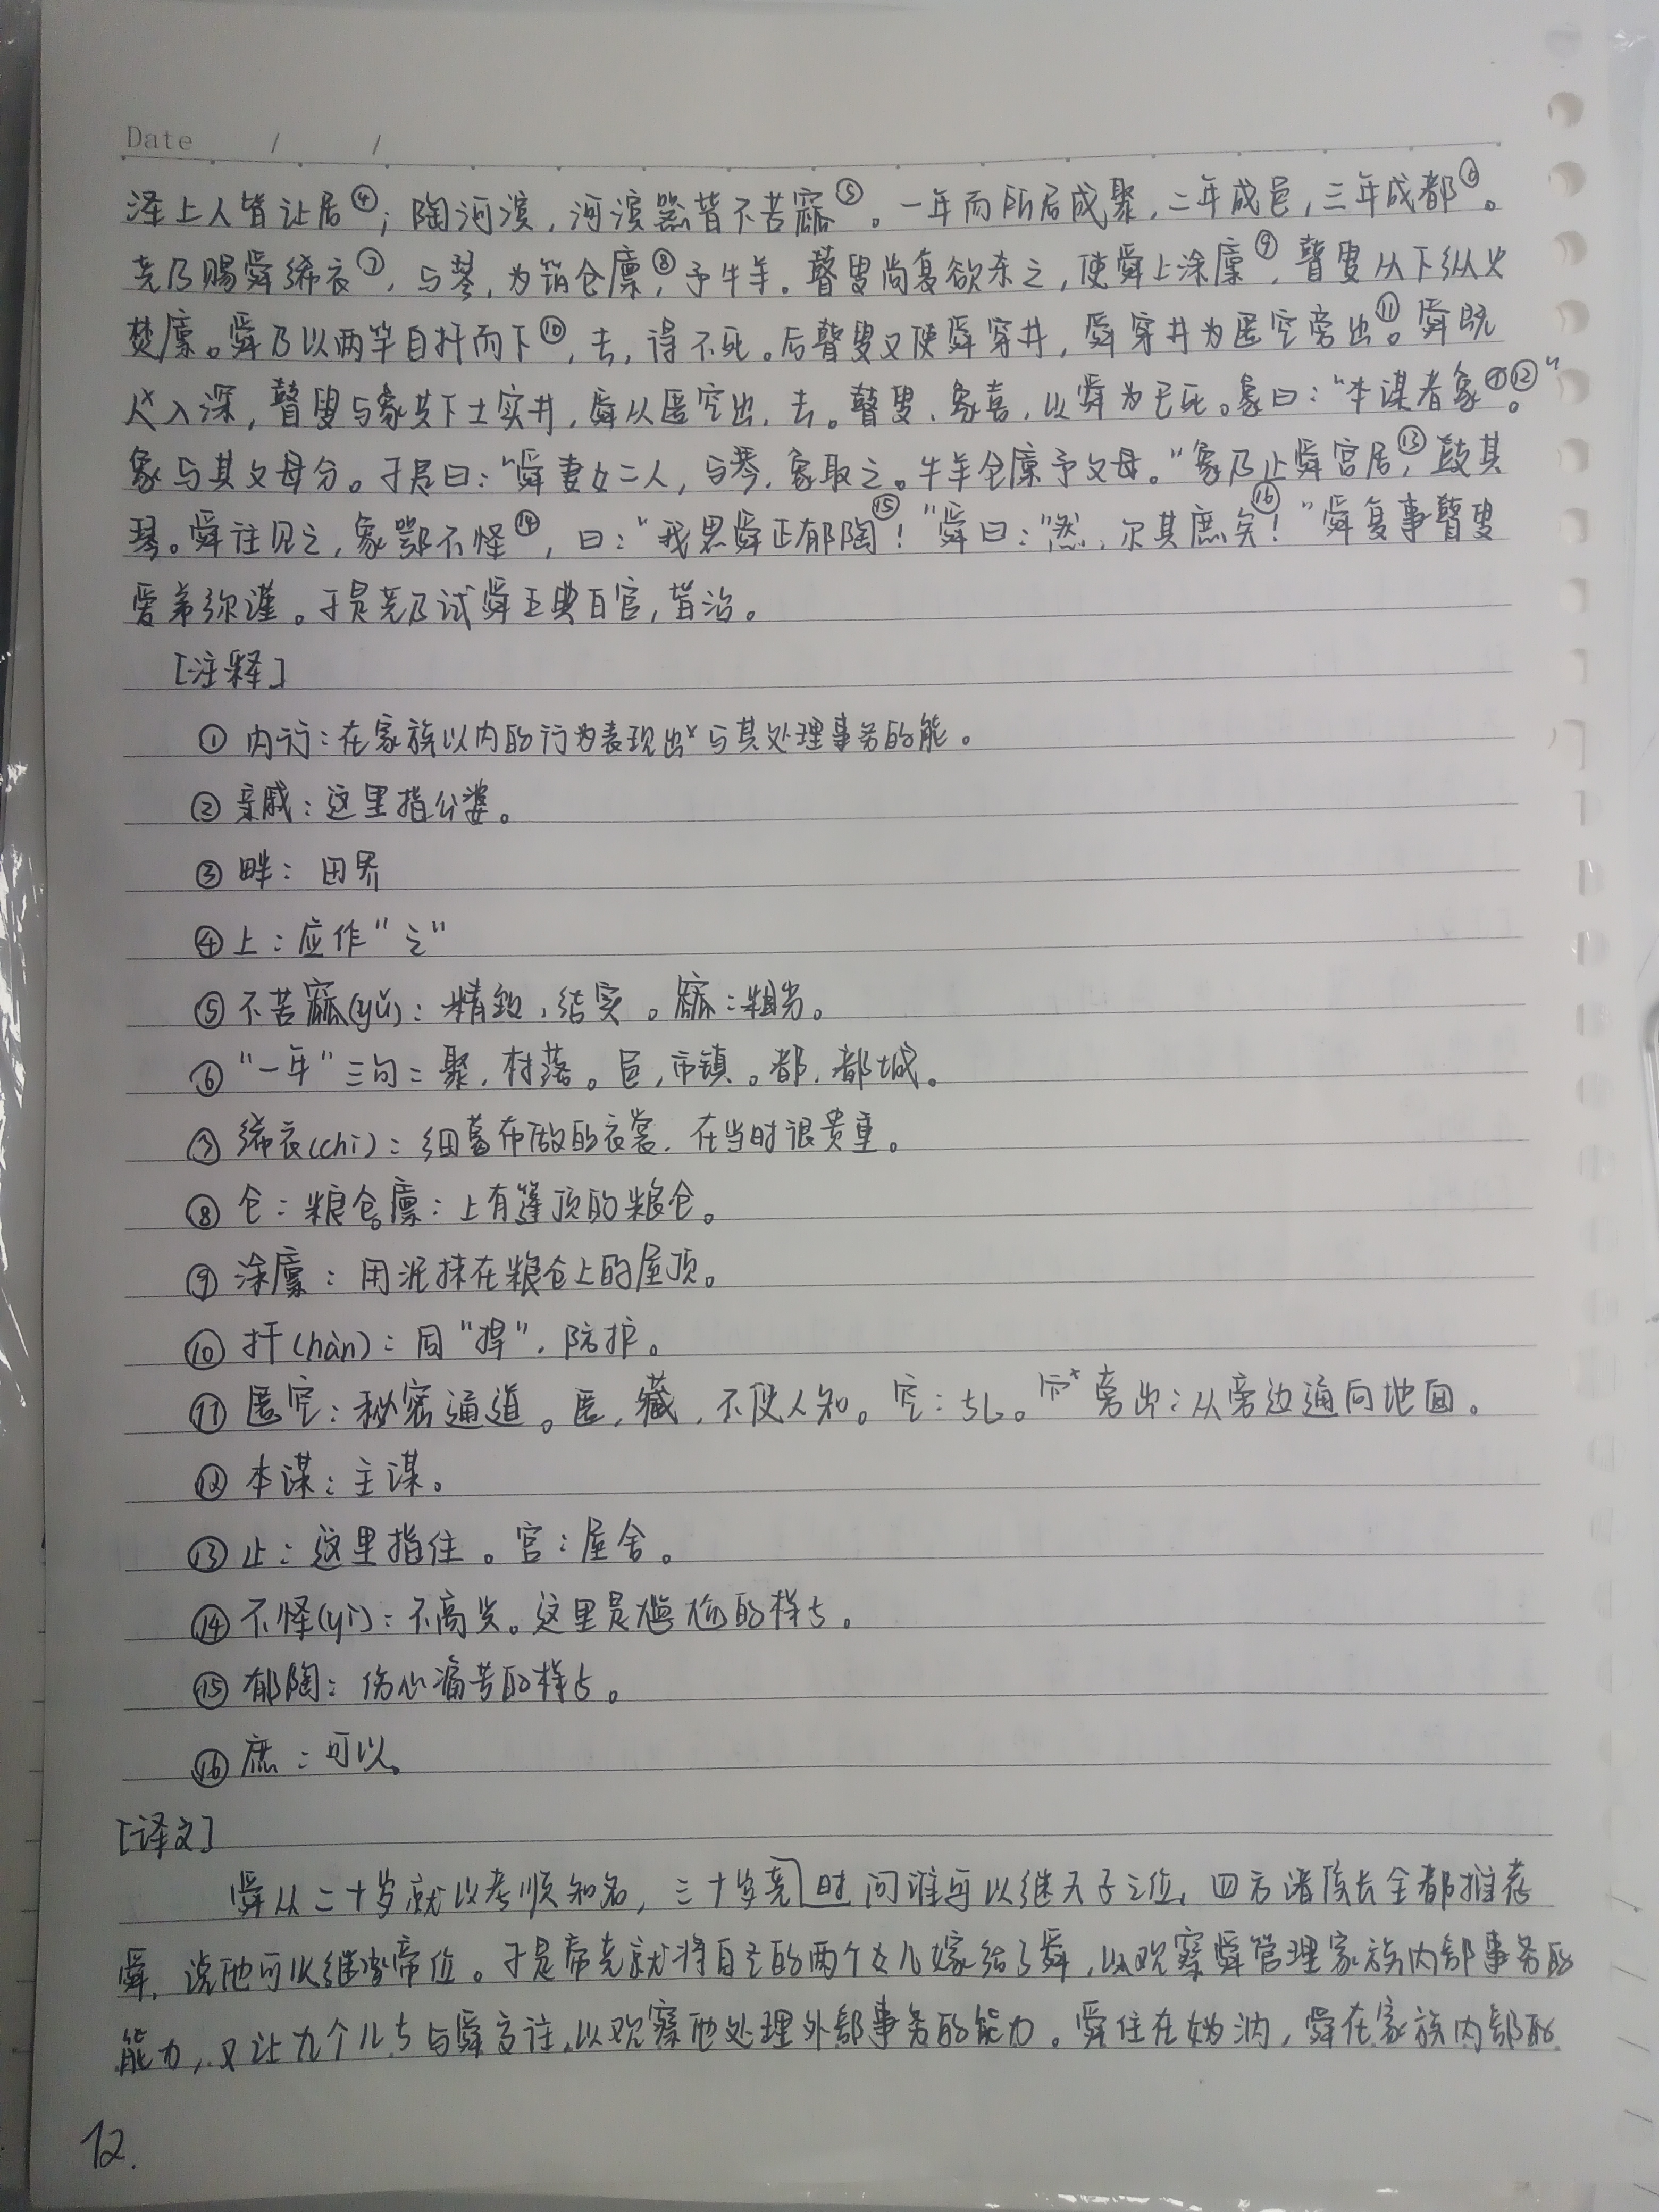 Date / /
泽上人皆让居④；陶河滨，河滨器皆不苦窳⑤。一年而所居成聚，二年成邑，三年成都⑥。
尧乃赐舜絺衣⑦，与琴，为筑仓廪⑧，予牛羊。瞽叟尚复欲杀之，使舜上涂廪⑨，瞽叟从下纵火
焚廪。舜乃以两笠自扞而下⑩，去，得不死。后瞽叟又使舜穿井，舜穿井为匿空旁出⑪。舜既
入深，瞽叟与象共下土实井，舜从匿空出，去。瞽叟、象喜，以舜为已死。象曰："本谋者象⑫。"
象与其父母分。于是曰："舜妻女二人，与琴，象取之。牛羊仓廪予父母。"象乃止舜宫居⑬，鼓其
琴。舜往见之，象鄂不怿⑭，曰："我思舜正郁陶⑮！"舜曰："然，尔其庶矣⑯！"舜复事瞽叟
爱弟弥谨。于是尧乃试舜五典百官，皆治。
[注释]
①内行：在家族以内的行为表现与其处理事务的能。
②亲戚：这里指公婆。
③畔：田界
④上：应作"之"
⑤不苦窳(yǔ)：精致，结实。窳：粗劣。
⑥"一年"三句：聚，村落。邑，市镇。都，都城。
⑦絺衣(chi)：细葛布做的衣裳，在当时很贵重。
⑧仓：粮仓。廪：上有篷顶的粮仓。
⑨涂廪：用泥抹在粮仓上的屋顶。
⑩扞(hàn)：同"捍"，防护。
⑪匿空：秘密通道。匿，藏，不使人知。空：孔。旁出：从旁边通向地面。
⑫本谋：主谋。
⑬止：这里指住。宫：屋舍。
⑭不怿(yì)：不高兴。这里是尴尬的样子。
⑮郁陶：伤心痛苦的样子。
⑯庶：可以。
[译文]
舜从二十岁就以孝顺知名，三十岁尧时问谁可以继天子之位，四方诸侯长全都推荐
舜，说他可以继承帝位。于是帝尧就将自己的两个女儿嫁给了舜，以观察舜管理家族内部事务的
能力，又让九个儿子与舜交往，以观察他处理外部事务的能力。舜住在妫汭，舜在家族内部的
12.